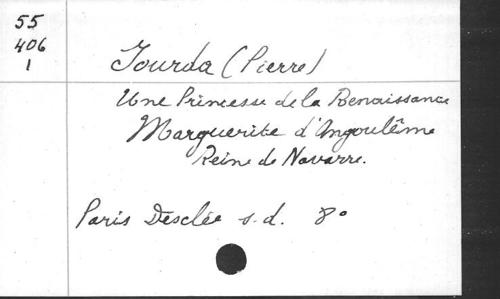 55
406
1
Jourda (Pierre)
Une Princesse de la Renaissance
Marguerite d'Angoulême
Reine de Navarre.
Paris Desclée s.d. 8°